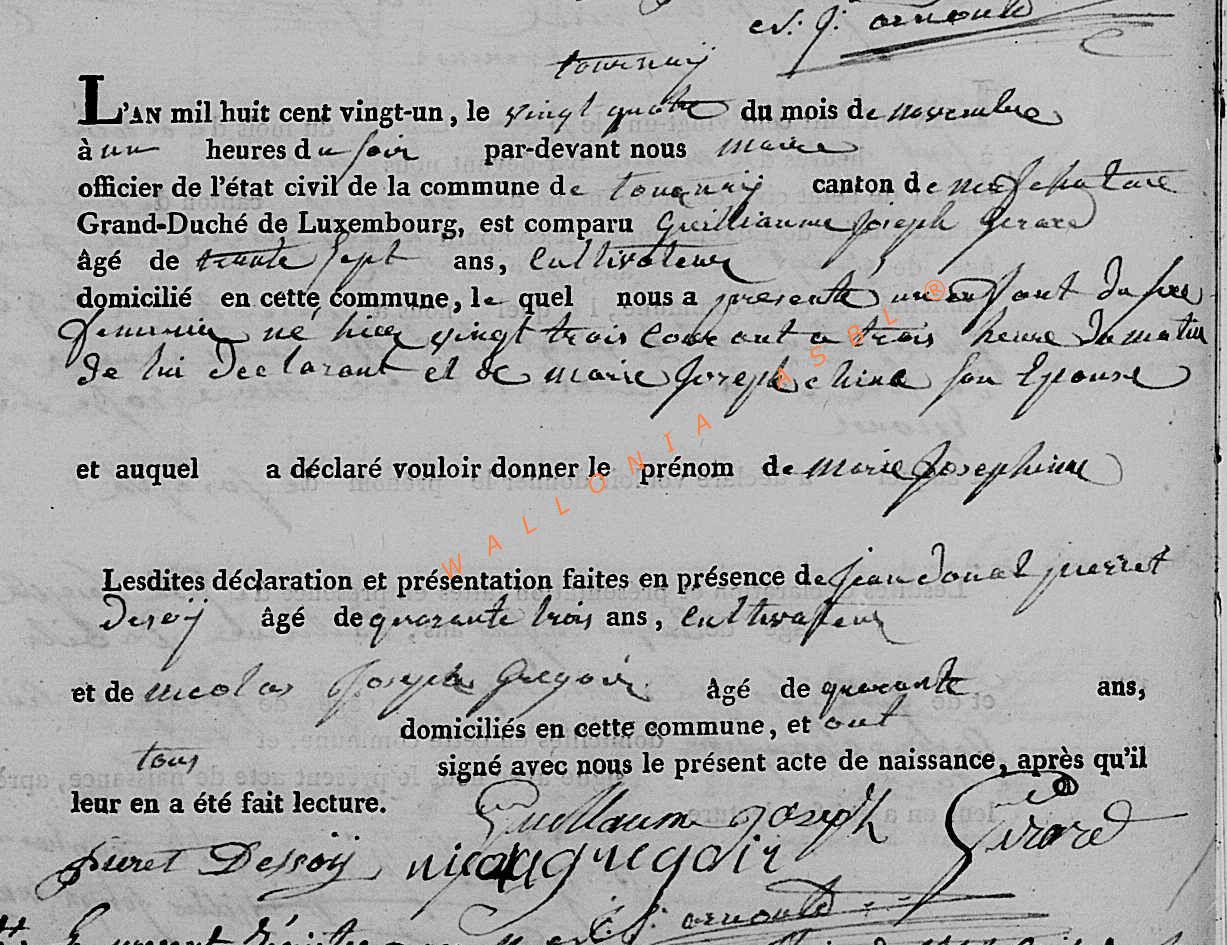 C. J. arnould
tournay
L'AN mil huit cent vingt-un, le vingt quatre du mois de novembre
à un heures du soir par-devant nous maire
officier de l'état civil de la commune de tournay canton de neufchateau
Grand-Duché de Luxembourg, est comparu Guilliaume Joseph Gerard
âgé de trente sept ans, Cultivateur
domicilié en cette commune, le quel nous a presenté un enffant du sexe
feminin né hier vingt trois courant a trois heure du matin
de lui declarant et de marie Joseph china son Epouse
et auquel a déclaré vouloir donner le prénom de marie Josephinne
Lesdites déclaration et présentation faites en présence de jean donat pierret
Desoij âgé de quarante trois ans, Cultivateur
et de nicolas Joseph Gregoir âgé de quarante ans,
domiciliés en cette commune, et ont
tous signé avec nous le présent acte de naissance, après qu'il
leur en a été fait lecture.
Guillaume Joseph Girard
pieret Dessoij nicolas gregoir
C. J. arnould
WALLONIA ASBL ®